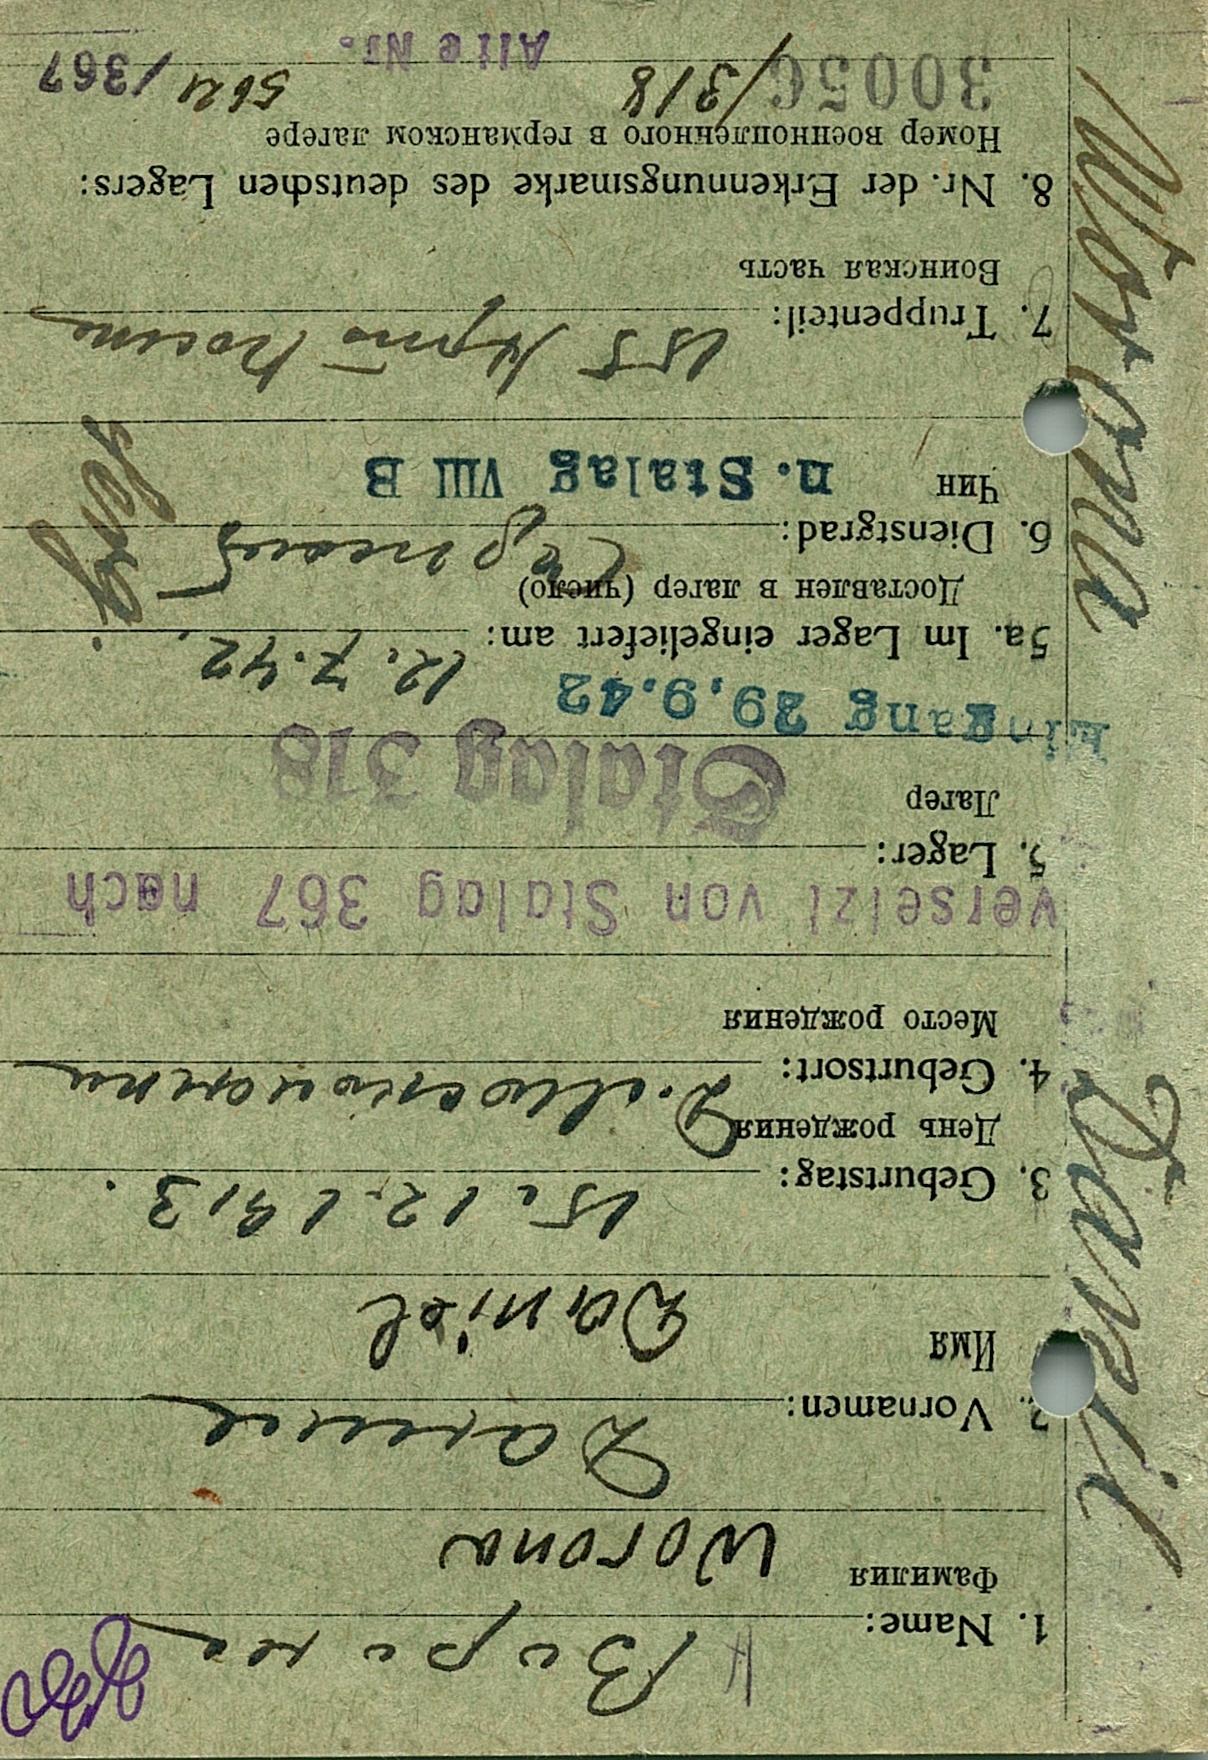 1. Name: Ворона
Фамилия
Worona
2. Vornamen: Данил
Имя
Daniel
3. Geburtstag: 15.12.1913.
День рождения
4. Geburtsort:
Место рождения
versetzt von Stalag 367 nach
5. Lager:
Лагер
Stalag 318
Eingang 29.9.42
5a. Im Lager eingeliefert am: 12.7.42.
Доставлен в лагер (число)
6. Dienstgrad: Сержант
Чин
n. Stalag VIII B
7. Truppenteil: 155
Воинская часть
8. Nr. der Erkennungsmarke des deutschen Lagers:
Номер военнопленного в германском лагере
30056/318
Alte Nr.
5621/367
Worona Daniil